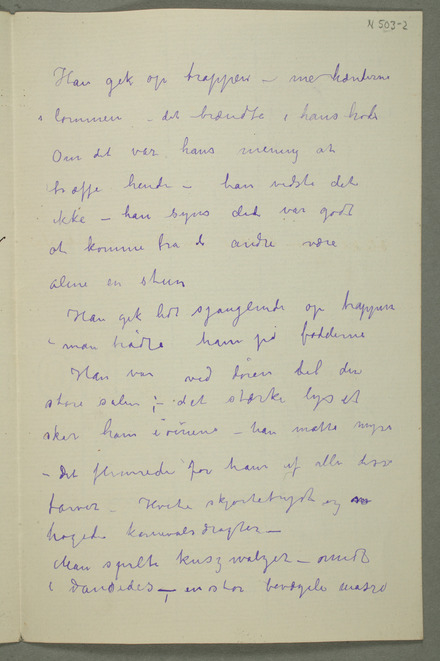 N 503-2
Han gik op trappen – me hænderne
i lommen – det brændte i hans hode
Om det var hans mening at
træffe hende – han vidste det
ikke – han syns det var godt
at komme fra de andre være
alene en stun
Han gik lidt sjanglende op trappen
– man trådte ham på fødderne
Han var ved døren til den
store salen ; – det stærke lys et
skar ham i øinene – han måtte myse
– det flimrede for ham af alle disse
farver – Hvite skjortebryst og
brogede karnevalsdragter –
Man spilte kusz walzer –
Dandedes – en stor bevægelig masse